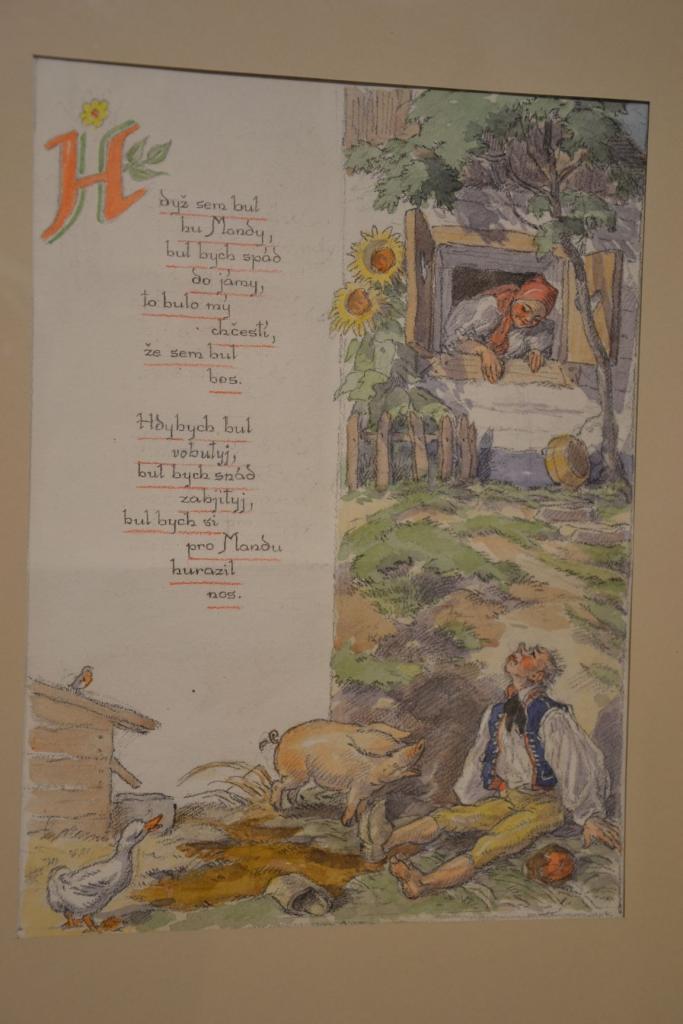 Hdyž sem bul
hu Mandy,
bul bych spád
do jámy,
to bulo mý
chčestí,
že sem bul
bos.
Hdybych bul
vobutyj,
bul bych spád
zabjityj,
bul bych si
pro Mandu
hurazil
nos.